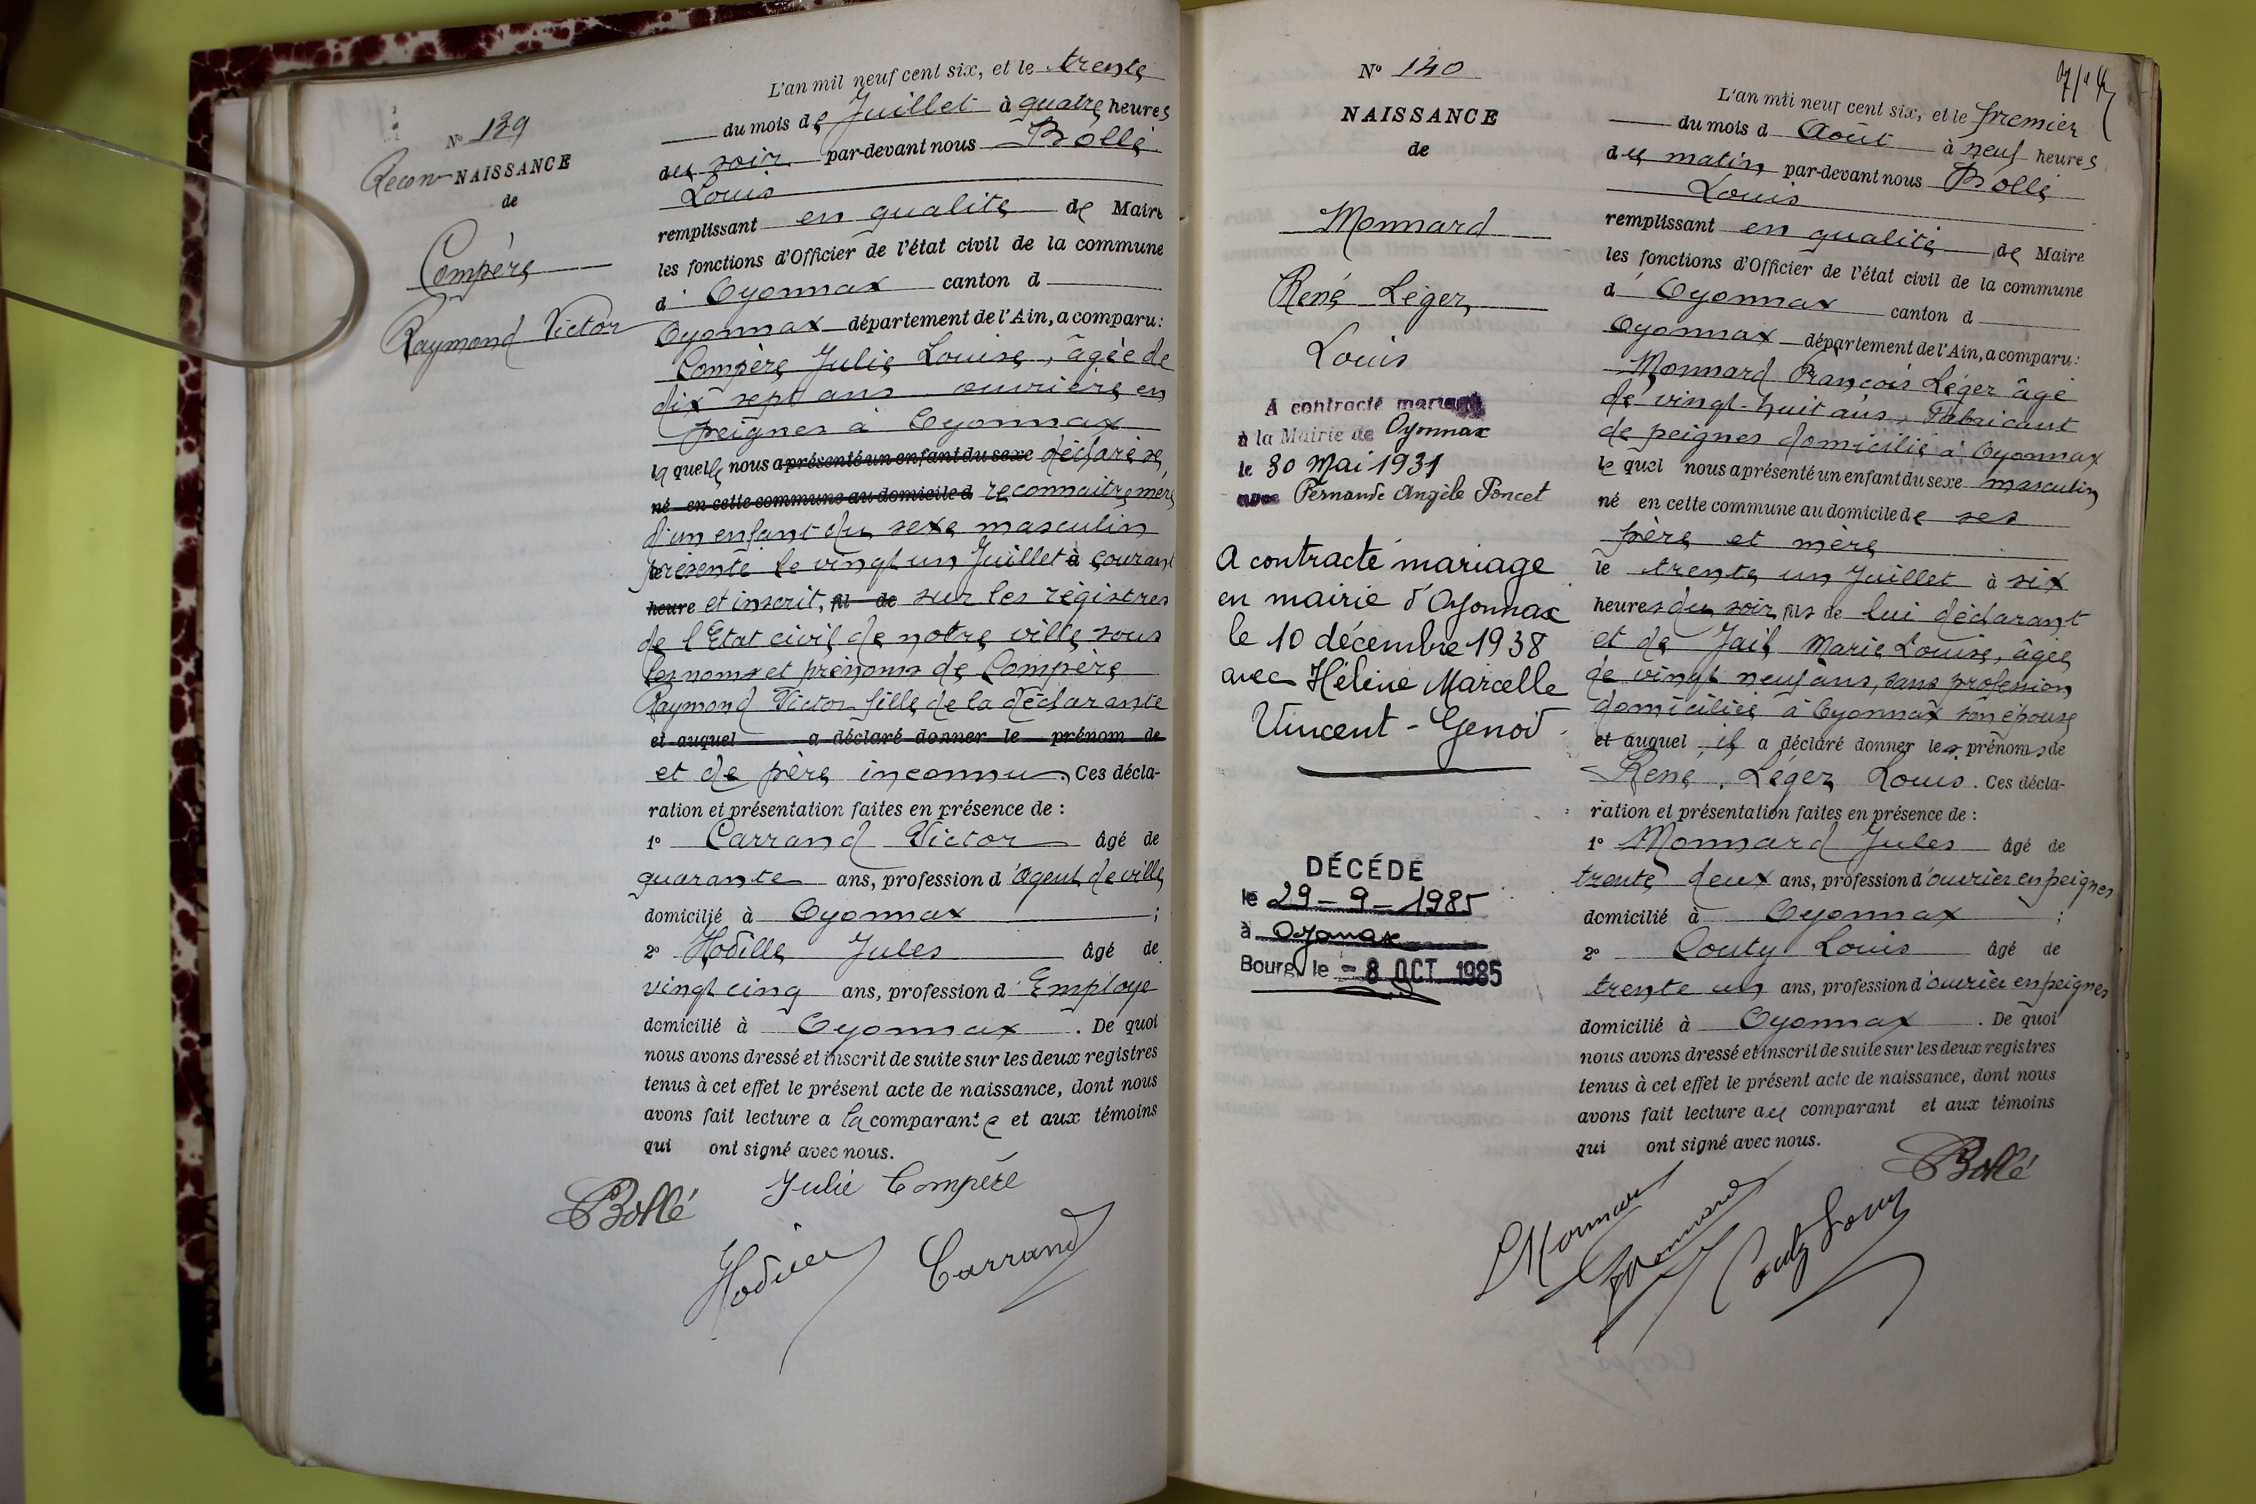 N° 139
Recon NAISSANCE
de
Compère
Raymond Victor
L'an mil neuf cent six, et le trente
du mois de Juillet à quatre heures
du soir par-devant nous Bollé
Louis
remplissant en qualité de Maire
les fonctions d'Officier de l'état civil de la commune
d' Oyonnax canton d
Oyonnax département de l'Ain, a comparu:
Compère Julie Louise, âgée de
dix sept ans ouvrière en
peignes à Oyonnax
la quelle nous a présenté un enfant du sexe déclaré se
né en cette commune au domicile d reconnaitre mère
d'un enfant du sexe masculin
présenté le vingt un Juillet à courant
heure et inscrit, fil de sur les régistres
de l'Etat civil de notre ville sous
les noms et prénoms de Compère
Raymond Victor fille de la déclarante
et auquel a déclaré donner le prénom de
et de père inconnu. Ces décla-
ration et présentation faites en présence de :
1° Carrand Victor âgé de
quarante ans, profession d'Agent de ville
domicilié à Oyonnax ;
2° Hodille Jules âgé de
vingt cinq ans, profession d'Employé
domicilié à Oyonnax. De quoi
nous avons dressé et inscrit de suite sur les deux registres
tenus à cet effet le présent acte de naissance, dont nous
avons fait lecture a la comparante et aux témoins
qui ont signé avec nous.
Julie Compère
Bollé
Hodille Carrand
N° 140
NAISSANCE
de
Monnard
René Léger
Louis
A contracté mariage
à la Mairie de Oyonnax
le 30 Mai 1931
avec Fernande Angèle Poncet
A contracté mariage
en mairie d'Oyonnax
le 10 décembre 1938
avec Hélène Marcelle
Vincent-Genod.
DÉCÉDÉ
le 29-9-1985
à Oyonnax
Bourg, le -8 OCT. 1985
L'an mil neuf cent six, et le premier
du mois d Août à neuf heures
du matin par-devant nous Bollé
Louis
remplissant en qualité de Maire
les fonctions d'Officier de l'état civil de la commune
d' Oyonnax canton d
Oyonnax département de l'Ain, a comparu:
Monnard François Léger âgé
de vingt-huit ans, Fabricant
de peignes domicilié à Oyonnax
le quel nous a présenté un enfant du sexe masculin
né en cette commune au domicile de ses
père et mère
le trente un Juillet à six
heures du soir, fils de lui déclarant
et de Jail Marie Louise, âgée
de vingt neuf ans, sans profession
domiciliée à Oyonnax son épouse
et auquel il a déclaré donner les prénoms de
René, Léger Louis. Ces décla-
ration et présentation faites en présence de :
1° Monnard Jules âgé de
trente deux ans, profession d'ouvrier en peignes
domicilié à Oyonnax ;
2° Couty Louis âgé de
trente un ans, profession d'ouvrier en peignes
domicilié à Oyonnax. De quoi
nous avons dressé et inscrit de suite sur les deux registres
tenus à cet effet le présent acte de naissance, dont nous
avons fait lecture au comparant et aux témoins
qui ont signé avec nous.
Bollé
Monnard Couty Louis